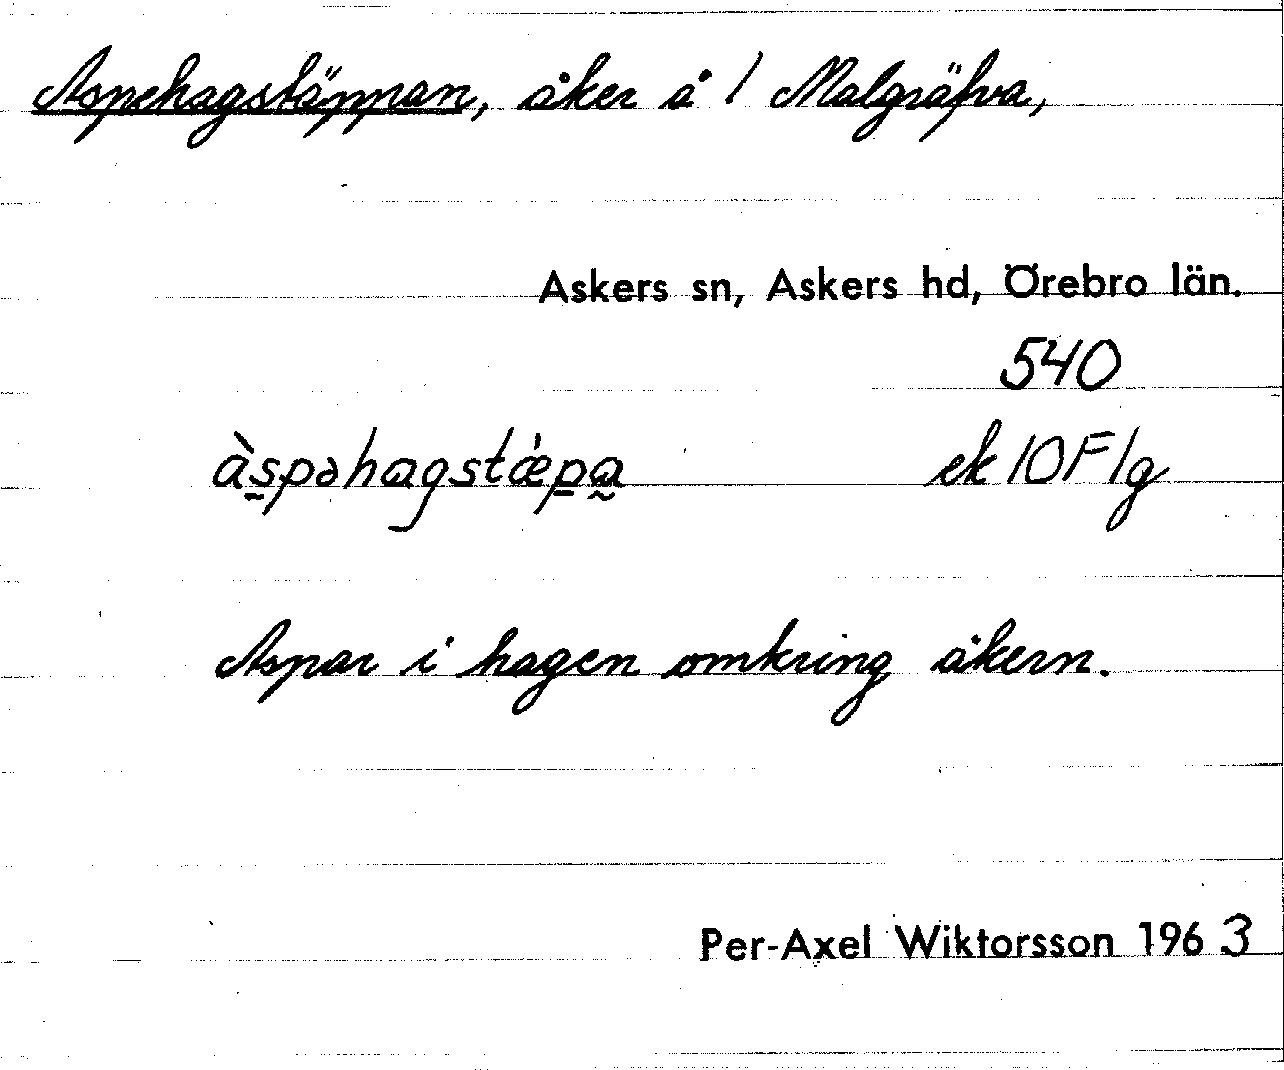 Aspehagstäppan, åker å 1 Malgräfva,
Askers sn, Askers hd, Örebro län.
540
àspəhagstǽpa ek 10F1g
Aspar i hagen omkring åkern.
Per-Axel Wiktorsson 1963